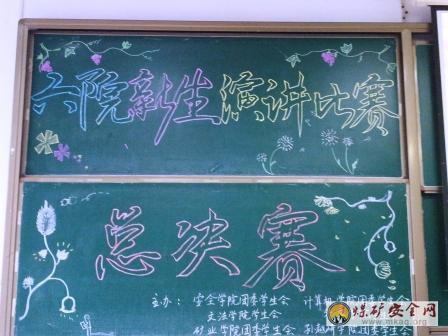 六院新生演讲比赛
总决赛
主办：安全学院团委学生会 计算机学院团委学生会
文法学院学生会
矿业学院团委学生会 孙越崎学院团委学生会
煤矿安全网
www.mkaq.org